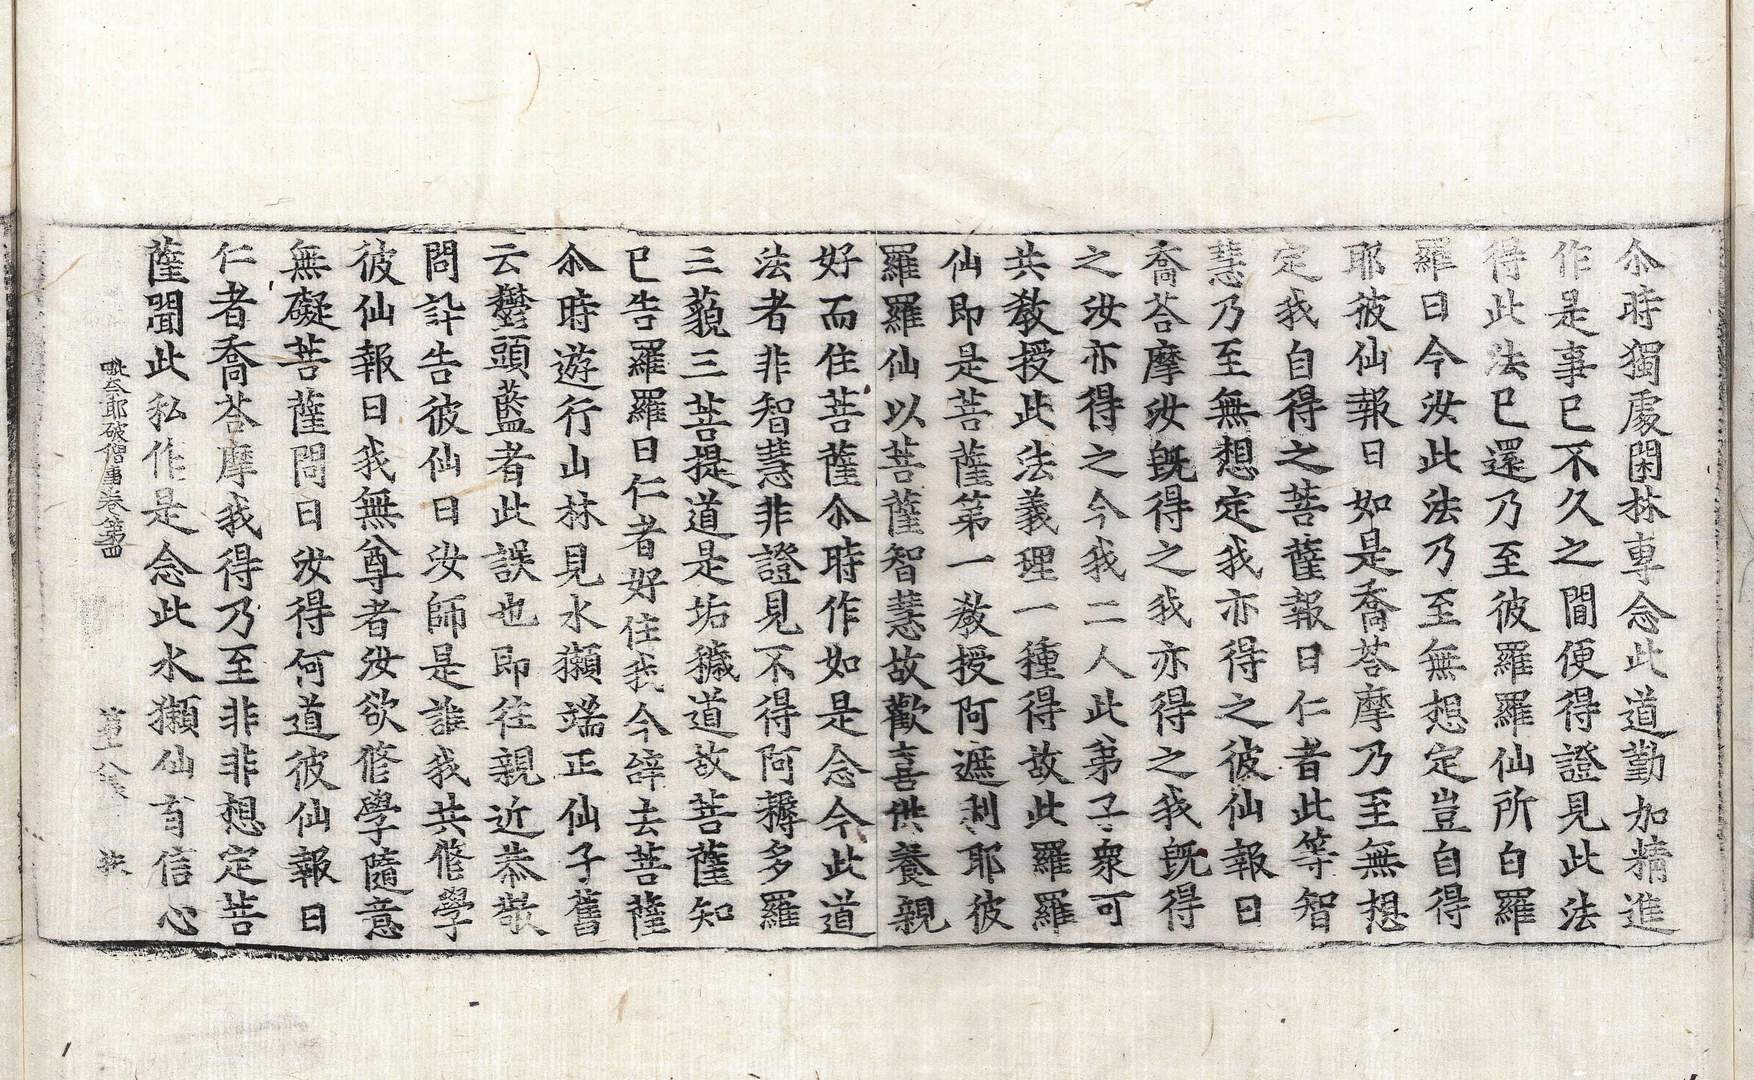 尒時獨處閑林專念此道勤加精進
作是事已不久之間便得證見此法
得此法已還乃至彼羅羅仙所白羅
羅曰今汝此法乃至無想定豈自得
耶彼仙報曰如是喬荅摩乃至無想
定我自得之菩薩報曰仁者此等智
慧乃至無想定我亦得之彼仙報曰
喬荅摩汝旣得之我亦得之我旣得
之汝亦得之今我二人此弟子衆可
共教授此法義理一種得故此羅羅
仙即是菩薩第一教授阿遮利耶彼
羅羅仙以菩薩智慧故歡喜供養親
好而住菩薩尒時作如是念今此道
法者非智慧非證見不得阿耨多羅
三藐三菩提道是垢穢道故菩薩知
已告羅羅曰仁者好住我今辝去菩薩
尒時遊行山林見水獺端正仙子舊
云鬱頭藍者此誤也即往親近恭敬
問訊告彼仙曰汝師是誰我共修學
彼仙報曰我無尊者汝欲修學隨意
無礙菩薩問曰汝得何道彼仙報曰
仁者喬荅摩我得乃至非非想定菩
薩聞此私作是念此水獺仙有信心
毗奈耶破僧事卷第四 第十八張